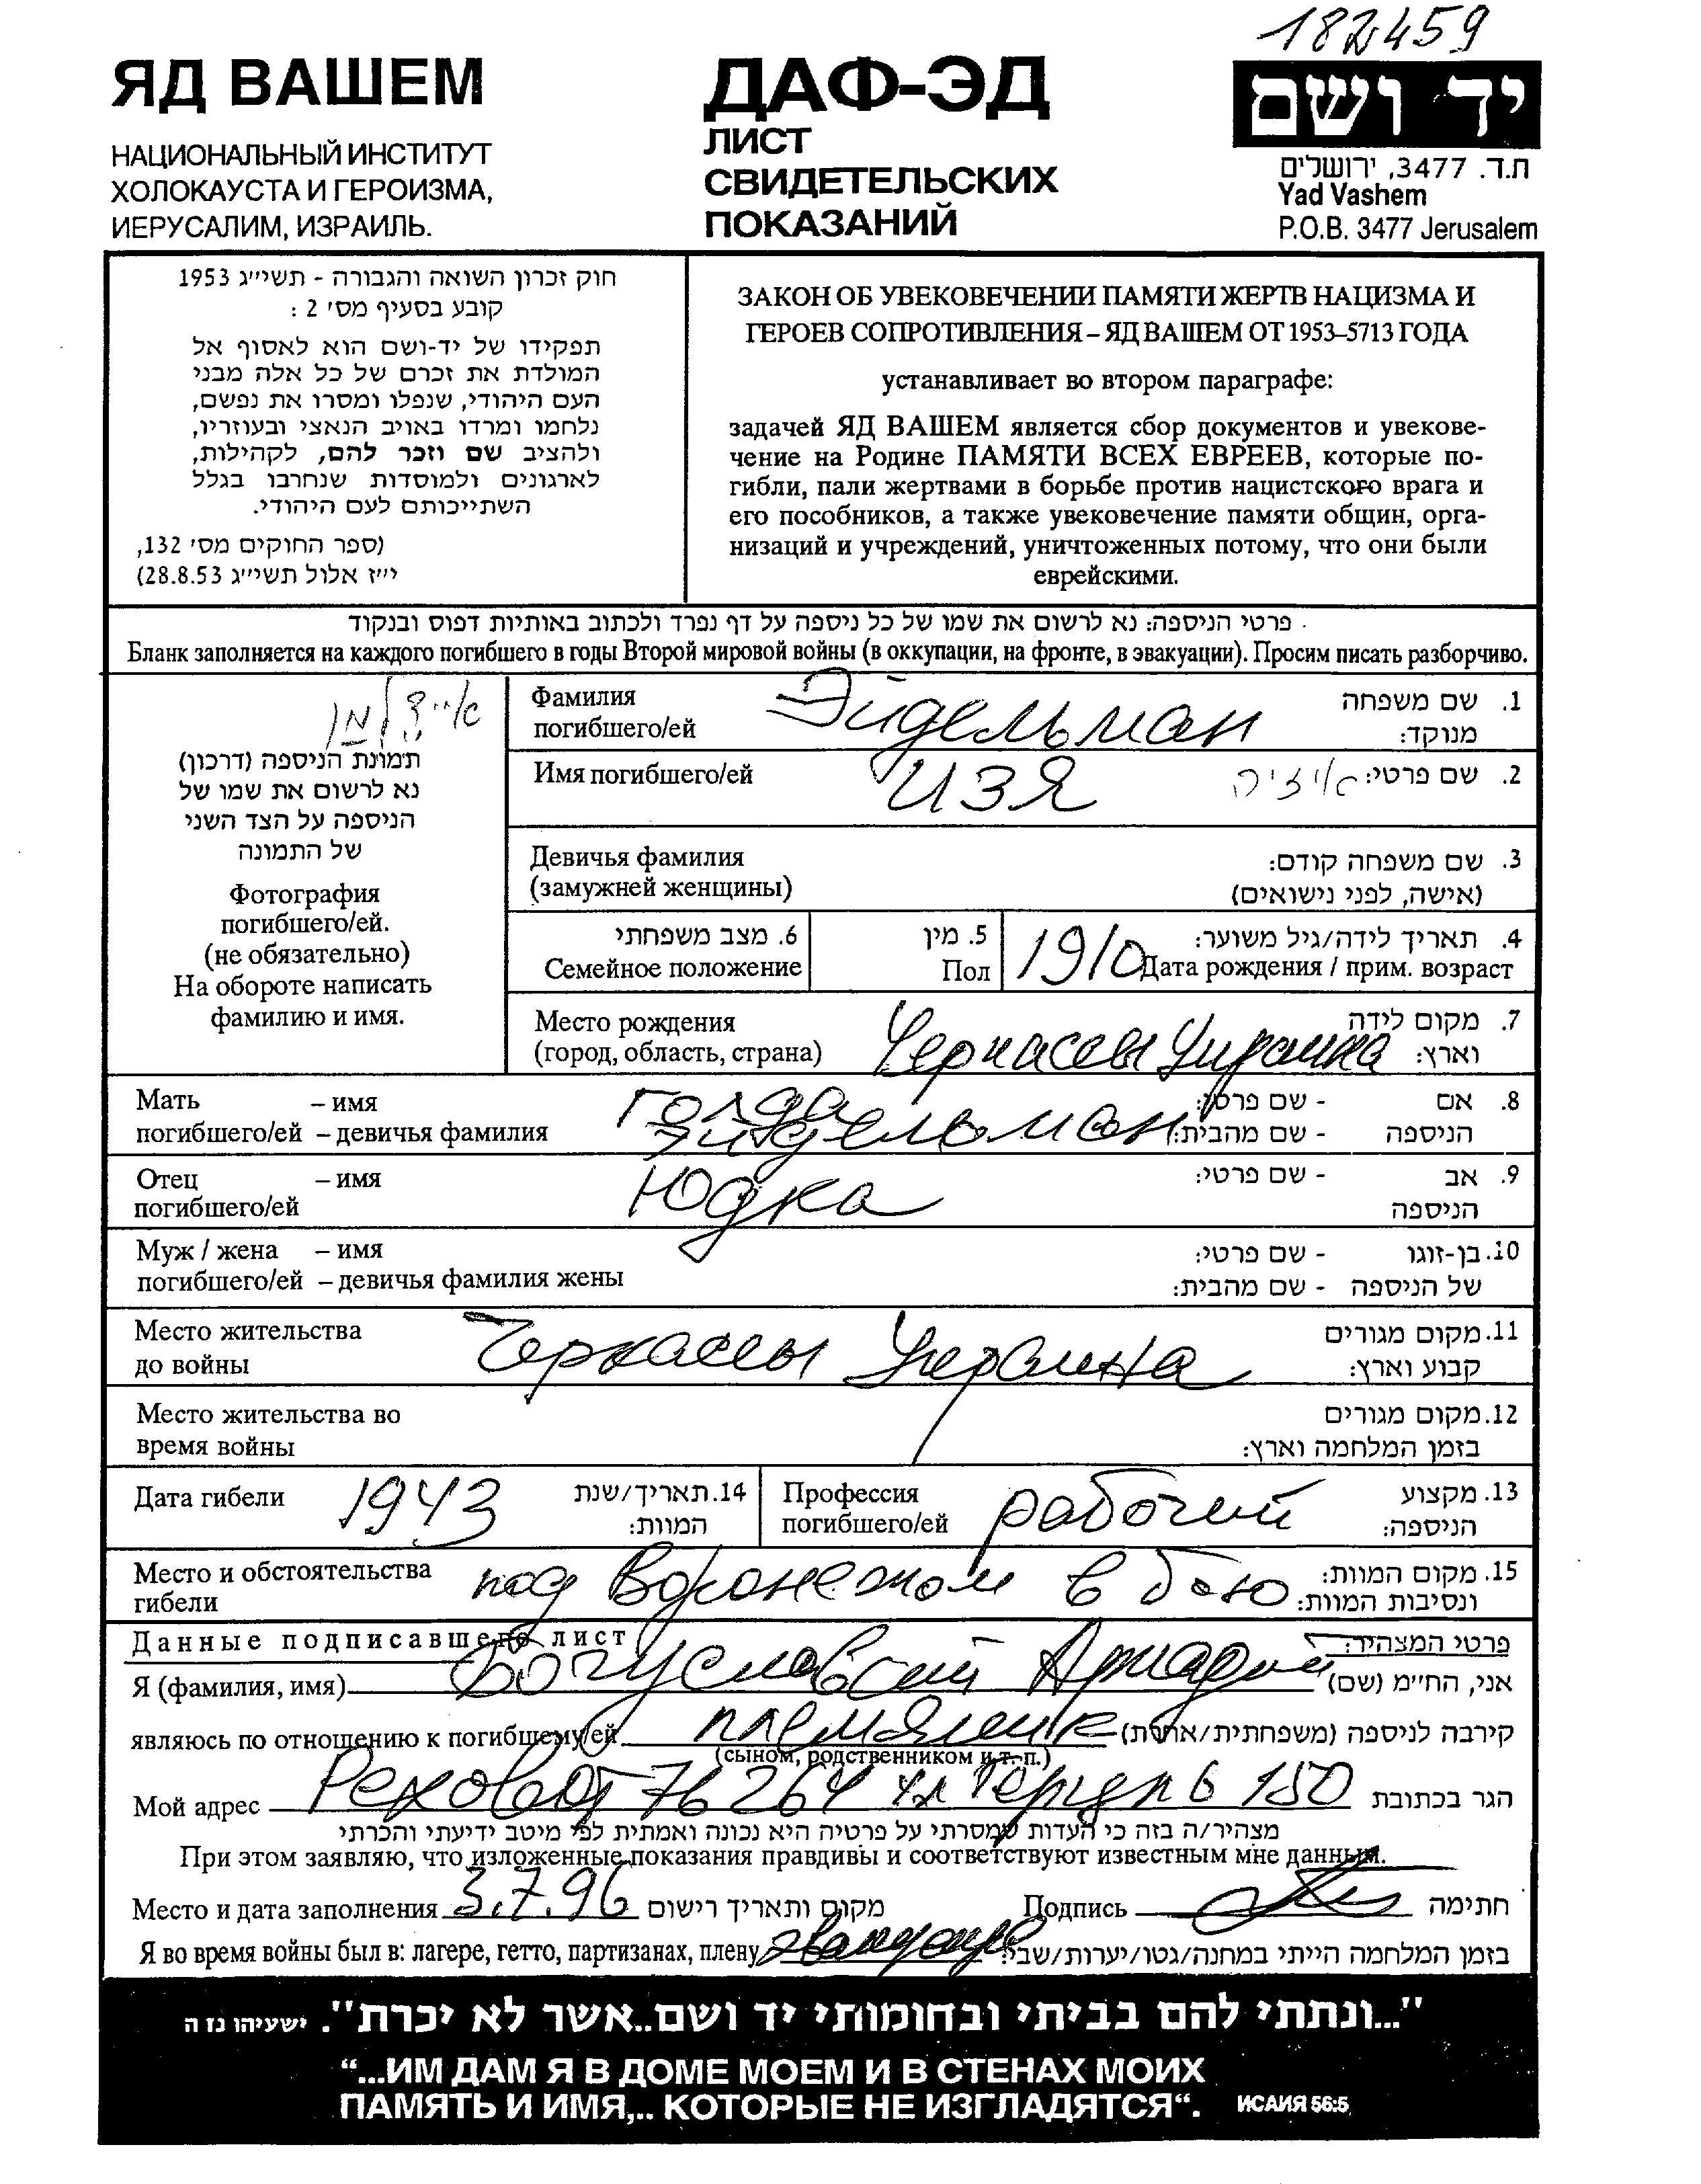 182459
ЯД ВАШЕМ
НАЦИОНАЛЬНЫЙ ИНСТИТУТ
ХОЛОКАУСТА И ГЕРОИЗМА,
ИЕРУСАЛИМ, ИЗРАИЛЬ.
ДАФ-ЭД
ЛИСТ
СВИДЕТЕЛЬСКИХ
ПОКАЗАНИЙ
יד ושם
ת.ד. 3477, ירושלים
Yad Vashem
P.O.B. 3477 Jerusalem
חוק זכרון השואה והגבורה - תשי״ג 1953
קובע בסעיף מס׳ 2 :
תפקידו של יד-ושם הוא לאסוף אל
המולדת את זכרם של כל אלה מבני
העם היהודי, שנפלו ומסרו את נפשם,
נלחמו ומרדו באויב הנאצי ובעוזריו,
ולהציב שם וזכר להם, לקהילות,
לארגונים ולמוסדות שנחרבו בגלל
השתייכותם לעם היהודי.
(ספר החוקים מס׳ 132,
י״ז אלול תשי״ג 28.8.53)
ЗАКОН ОБ УВЕКОВЕЧЕНИИ ПАМЯТИ ЖЕРТВ НАЦИЗМА И
ГЕРОЕВ СОПРОТИВЛЕНИЯ – ЯД ВАШЕМ ОТ 1953–5713 ГОДА
устанавливает во втором параграфе:
задачей ЯД ВАШЕМ является сбор документов и увекове-
чение на Родине ПАМЯТИ ВСЕХ ЕВРЕЕВ, которые по-
гибли, пали жертвами в борьбе против нацистского врага и
его пособников, а также увековечение памяти общин, орга-
низаций и учреждений, уничтоженных потому, что они были
еврейскими.
פרטי הניספה: נא לרשום את שמו של כל ניספה על דף נפרד ולכתוב באותיות דפוס ובנקוד
Бланк заполняется на каждого погибшего в годы Второй мировой войны (в оккупации, на фронте, в эвакуации). Просим писать разборчиво.
איידלמן
תמונת הניספה (דרכון)
נא לרשום את שמו של
הניספה על הצד השני
של התמונה
Фотография
погибшего/ей.
(не обязательно)
На обороте написать
фамилию и имя.
Фамилия Эйдельман 1. שם משפחה
погибшего/ей מנוקד:
Имя погибшего/ей Изя איזיה 2. שם פרטי:
Девичья фамилия 3. שם משפחה קודם:
(замужней женщины) (אישה, לפני נישואים)
6. מצב משפחתי 5. מין 4. תאריך לידה/גיל משוער:
Семейное положение Пол 1910 Дата рождения / прим. возраст
Место рождения 7. מקום לידה
(город, область, страна) Черкассы Украина וארץ:
Мать – имя Голда 8. אם - שם פרטי:
погибшего/ей – девичья фамилия Эйдельман הניספה - שם מהבית:
Отец – имя Юдка 9. אב - שם פרטי:
погибшего/ей הניספה
Муж / жена – имя 10. בן-זוגו - שם פרטי:
погибшего/ей – девичья фамилия жены של הניספה - שם מהבית:
Место жительства Черкассы Украина 11. מקום מגורים
до войны קבוע וארץ:
Место жительства во 12. מקום מגורים
время войны בזמן המלחמה וארץ:
Дата гибели 1943 14. תאריך/שנת המוות:
Профессия рабочий 13. מקצוע
погибшего/ей הניספה:
Место и обстоятельства под Воронежом в бою 15. מקום המוות:
гибели ונסיבות המוות:
Данные подписавшего лист פרטי המצהיר:
Я (фамилия, имя) Богуславский Аркадий אני, הח״מ (שם)
являюсь по отношению к погибшему/ей племянник קירבה לניספה (משפחתית/אחרת)
(сыном, родственником и т. п.)
Мой адрес Реховот 76264 ул Герцль 150 הגר בכתובת
מצהיר/ה בזה כי העדות שמסרתי על פרטיה היא נכונה ואמתית לפי מיטב ידיעתי והכרתי
При этом заявляю, что изложенные показания правдивы и соответствуют известным мне данным.
Место и дата заполнения 3.7.96 מקום ותאריך רישום Подпись חתימה
Я во время войны был в: лагере, гетто, партизанах, плену בזמן המלחמה הייתי במחנה/גטו/יערות/שבי:
"...ונתתי להם בביתי ובחומותי יד ושם..אשר לא יכרת". ישעיהו נז ה
“...ИМ ДАМ Я В ДОМЕ МОЕМ И В СТЕНАХ МОИХ
ПАМЯТЬ И ИМЯ,.. КОТОРЫЕ НЕ ИЗГЛАДЯТСЯ“. ИСАИЯ 56:5